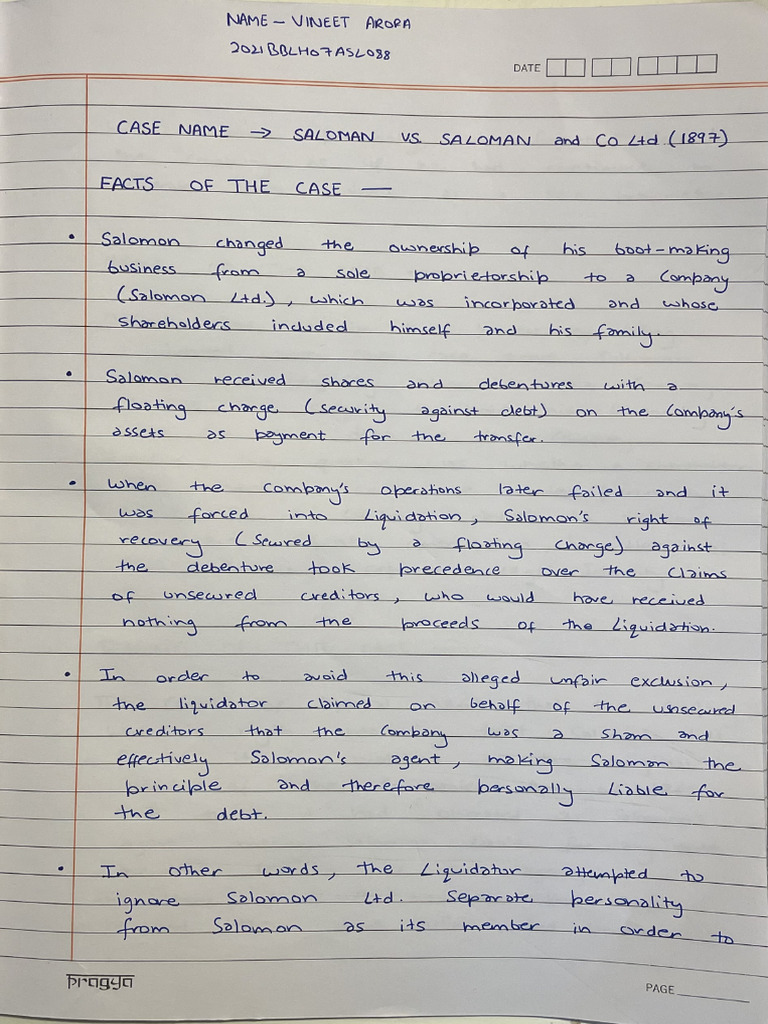 NAME – VINEET ARORA
2021BBLH07ASL088
DATE
CASE NAME → SALOMAN VS. SALOMAN and CO Ltd (1897)
FACTS OF THE CASE —
• Salomon changed the ownership of his boot-making
business from a sole proprietorship to a Company
(Salomon Ltd.), which was incorporated and whose
shareholders included himself and his family.
• Salomon received shares and debentures with a
floating charge (security against debt) on the Company's
assets as payment for the transfer.
• When the Company's operations later failed and it
was forced into Liquidation, Salomon's right of
recovery (Secured by a floating charge) against
the debenture took precedence over the claims
of unsecured creditors, who would have received
nothing from the proceeds of the Liquidation.
• In order to avoid this alleged unfair exclusion,
the liquidator claimed on behalf of the unsecured
creditors that the Company was a sham and
effectively Salomon's agent, making Salomon the
principle and therefore personally Liable for
the debt.
• In other words, the Liquidator attempted to
ignore Salomon Ltd. Separate personality
from Salomon as its member in order to
Pragya
PAGE